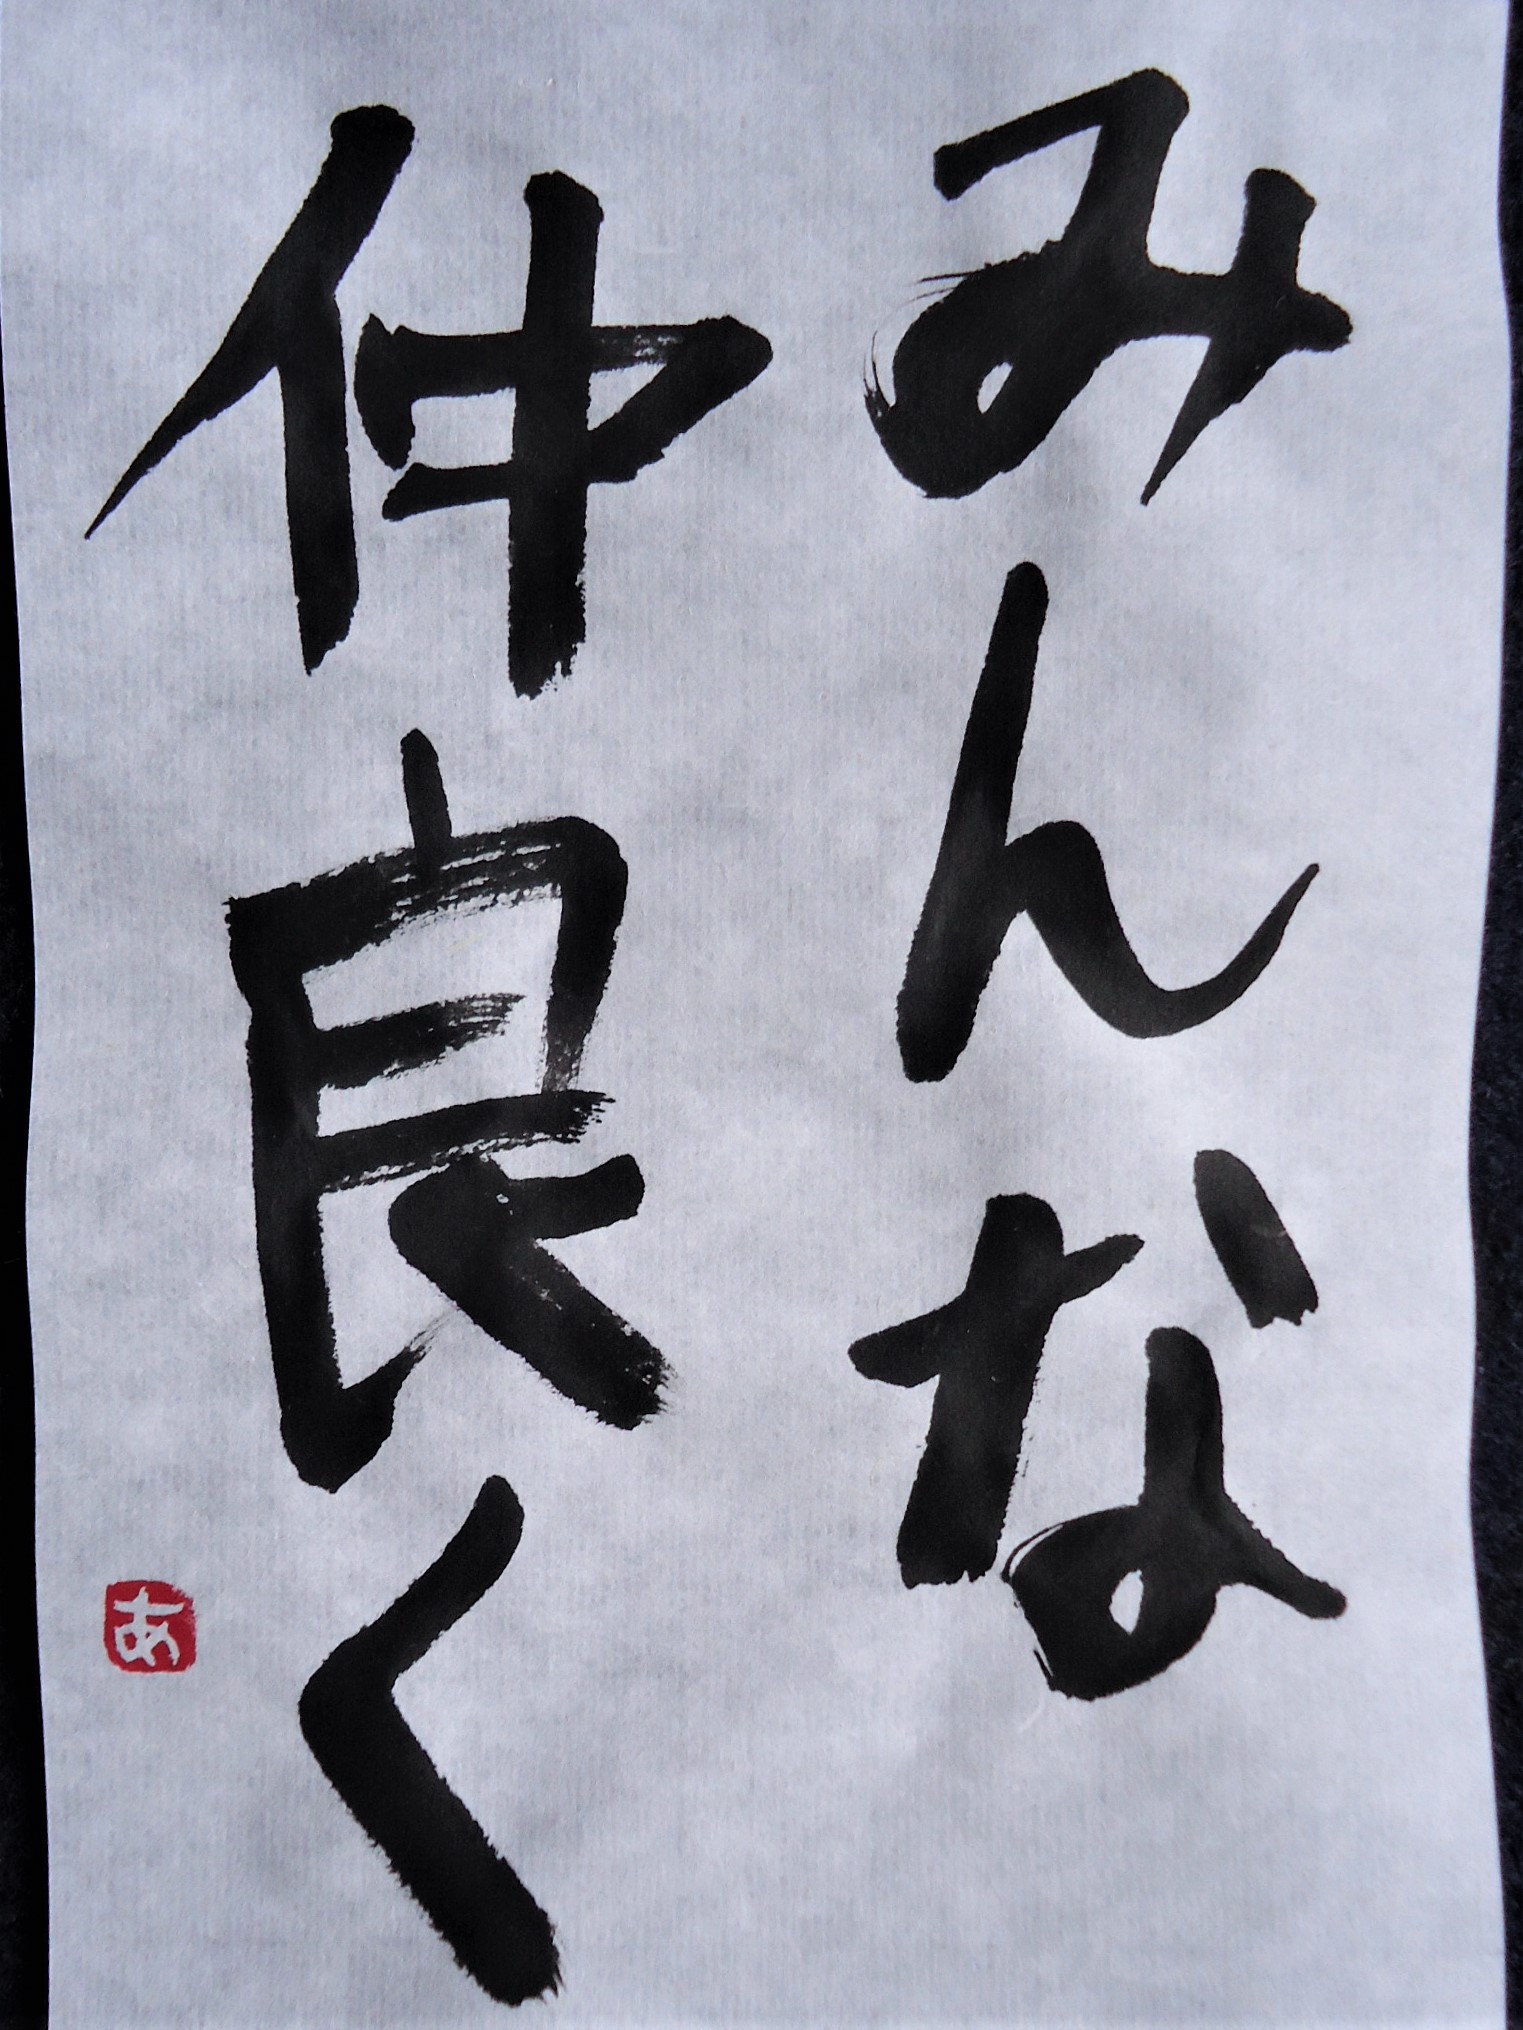 みんな
仲良く
あ